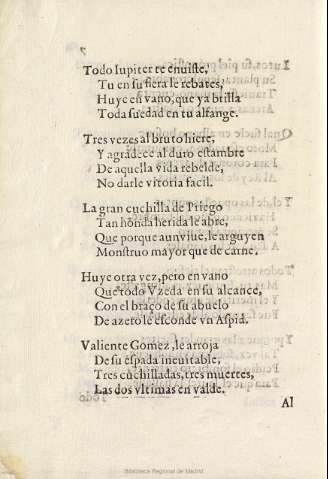 Todo Iupiter te enuiste,
Tu en su fiera le rebates,
Huye en vano, que ya brilla
Toda su edad en tu alfange.
Tres vezes al bruto hiere,
Y agradece al duro estambre
De aquella vida rebelde,
No darle vitoria facil.
La gran cuchilla de Priego
Tan honda herida le abre,
Que porque aun viue, le arguyen
Monstruo mayor que de carne.
Huye otra vez, pero en vano
Que todo Vzeda en su alcance,
Con el braço de su abuelo
De azero le esconde vn Aspid.
Valiente Gomez, le arroja
De su espada ineuitable,
Tres cuchilladas, tres muertes,
Las dos vltimas en valde.
Al
Biblioteca Regional de Madrid